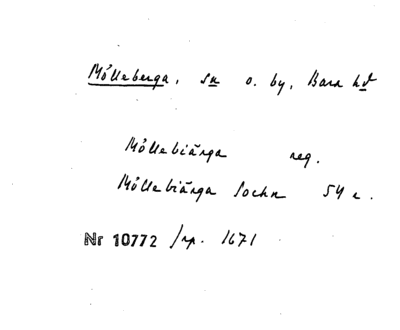 Mölleberga, sn o. by, Bara hd
Möllebiärga reg.
Möllebiärga Sochn 54 r.
Nr 10772 /rp. 1671